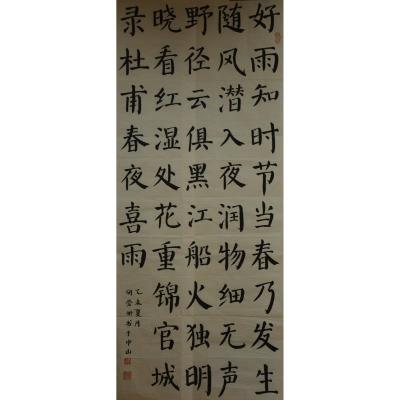 好雨知时节当春乃发生
随风潜入夜润物细无声
野径云俱黑江船火独明
晓看红湿处花重锦官城
录杜甫春夜喜雨
乙未夏月
书于中山